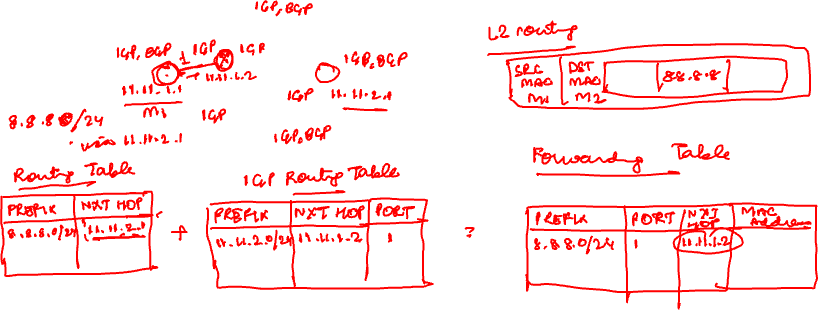 IGP, BGP
IGP, BGP 1 IGP IGP
11.11.1.2
11.11.1.1
M1
IGP, BGP
IGP 11.11.2.1
8.8.8.0/24
via 11.11.2.1
IGP
IGP, BGP
L2 routing
SRC MAC M1 DST MAC M2 8.8.8.8
Routing Table
PREFIX NXT HOP
8.8.8.0/24 11.11.2.1
+
IGP Routing Table
PREFIX NXT HOP PORT
11.11.2.0/24 11.11.1.2 1
=
Forwarding Table
PREFIX PORT NXT HOP MAC Address
8.8.8.0/24 1 11.11.1.2